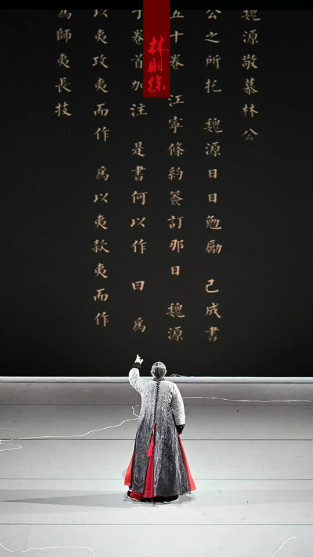 林則徐
魏源敬慕林公
公之所托 魏源日日勉勵 已成書
五十卷 江寧條約簽訂那日 魏源
于卷首加注 是書何以作 曰 為
以夷攻夷而作 為以夷款夷而作
為師夷長技